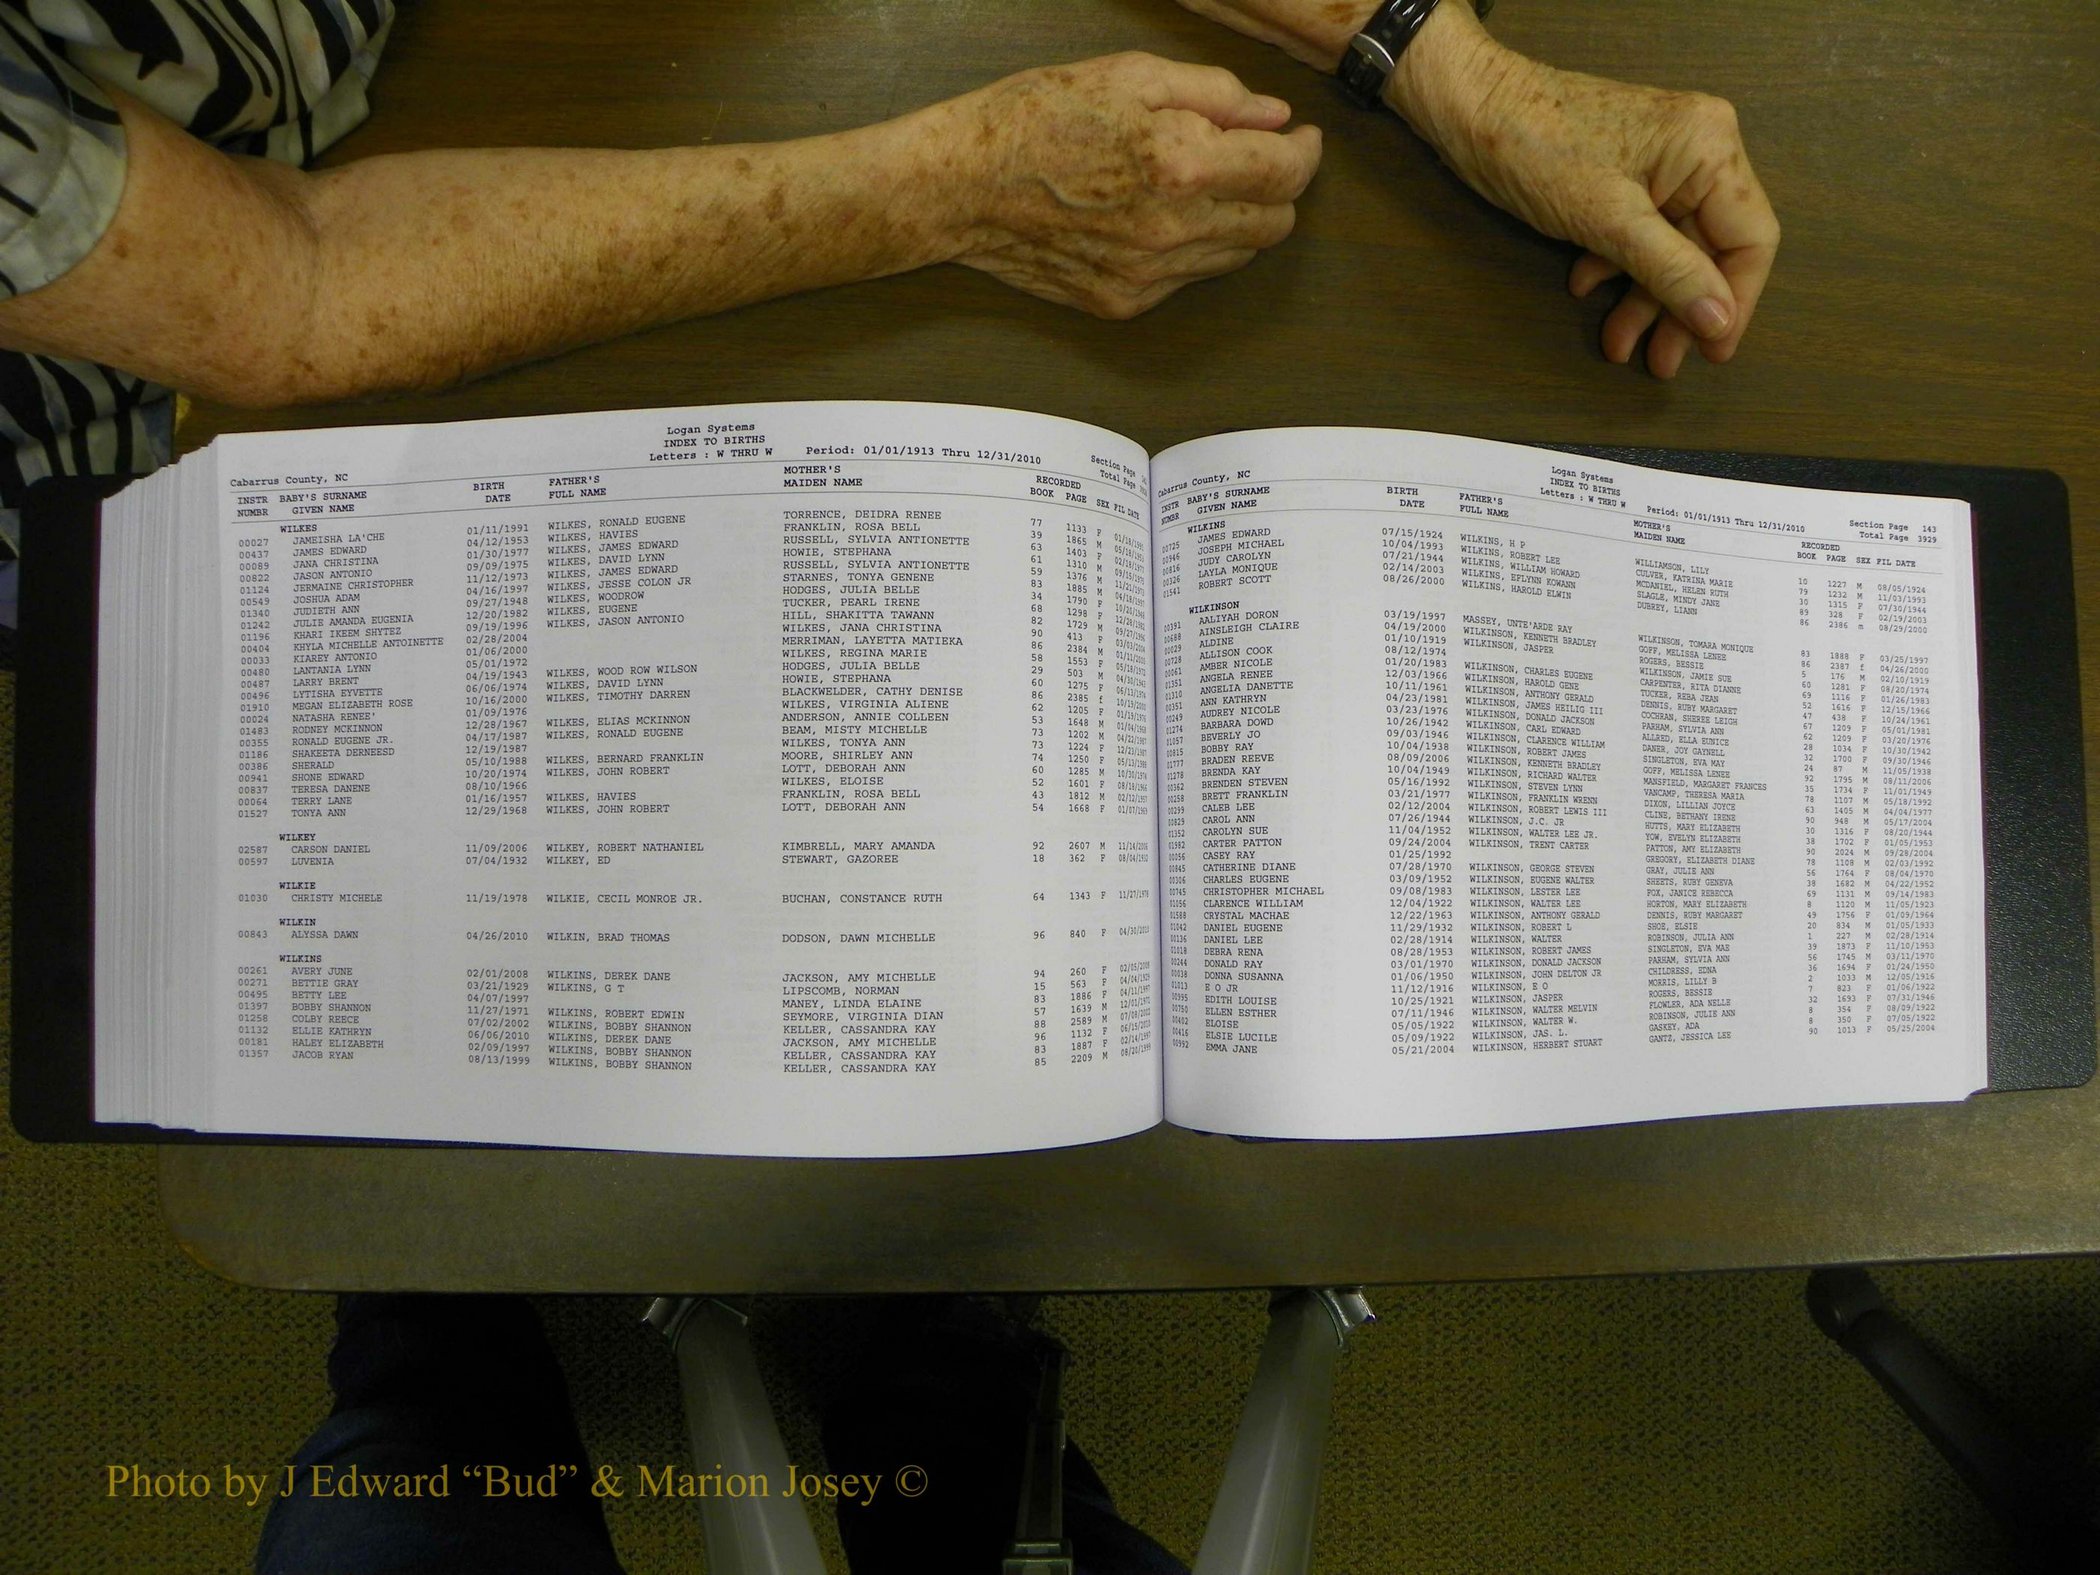 Logan Systems
INDEX TO BIRTHS
Letters : W THRU W Period: 01/01/1913 Thru 12/31/2010
Section Page
Total Page
Cabarrus County, NC
INSTR NUMBR BABY'S SURNAME GIVEN NAME BIRTH DATE FATHER'S FULL NAME MOTHER'S MAIDEN NAME RECORDED BOOK PAGE SEX FIL DATE
WILKES
00027 JAMEISHA LA'CHE 01/11/1991 WILKES, RONALD EUGENE TORRENCE, DEIDRA RENEE 77 1133 F 01/18/1991
00437 JAMES EDWARD 04/12/1953 WILKES, HAVIES FRANKLIN, ROSA BELL 39 1865 M 05/18/1953
00089 JANA CHRISTINA 01/30/1977 WILKES, JAMES EDWARD RUSSELL, SYLVIA ANTIONETTE 63 1403 F
00822 JASON ANTONIO 09/09/1975 WILKES, DAVID LYNN HOWIE, STEPHANA 61 1310 M 09/15/1975
01124 JERMAINE CHRISTOPHER 11/12/1973 WILKES, JAMES EDWARD RUSSELL, SYLVIA ANTIONETTE 59 1376 M 11/21/1973
00549 JOSHUA ADAM 04/16/1997 WILKES, JESSE COLON JR STARNES, TONYA GENENE 83 1885 M
01340 JUDIETH ANN 09/27/1948 WILKES, WOODROW HODGES, JULIA BELLE 34 1790 F
01242 JULIE AMANDA EUGENIA 12/20/1982 WILKES, EUGENE TUCKER, PEARL IRENE 68 1298 F 12/28/1982
01196 KHARI IKEEM SHYTEZ 09/19/1996 WILKES, JASON ANTONIO HILL, SHAKITTA TAWANN 82 1729 M 09/27/1996
00404 KHYLA MICHELLE ANTOINETTE 02/28/2004 WILKES, JANA CHRISTINA 90 413 F 03/03/2004
00033 KIAREY ANTONIO 01/06/2000 MERRIMAN, LAYETTA MATIEKA 86 2384 M 01/11/2000
00480 LANTANIA LYNN 05/01/1972 WILKES, REGINA MARIE 58 1553 F 05/18/1972
00487 LARRY BRENT 04/19/1943 WILKES, WOOD ROW WILSON HODGES, JULIA BELLE 29 503 M 04/30/1943
00496 LYTISHA EYVETTE 06/06/1974 WILKES, DAVID LYNN HOWIE, STEPHANA 60 1275 F 06/13/1974
01910 MEGAN ELIZABETH ROSE 10/16/2000 WILKES, TIMOTHY DARREN BLACKWELDER, CATHY DENISE 86 2385 f 10/19/2000
00024 NATASHA RENEE' 01/09/1976 WILKES, VIRGINIA ALIENE 62 1205 F 01/19/1976
01483 RODNEY MCKINNON 12/28/1967 WILKES, ELIAS MCKINNON ANDERSON, ANNIE COLLEEN 53 1648 M 01/04/1968
00355 RONALD EUGENE JR. 04/17/1987 WILKES, RONALD EUGENE BEAM, MISTY MICHELLE 73 1202 M 04/22/1987
01186 SHAKEETA DERNEESD 12/19/1987 WILKES, TONYA ANN 73 1224 F 12/23/1987
00386 SHERALD 05/10/1988 WILKES, BERNARD FRANKLIN MOORE, SHIRLEY ANN 74 1250 F 05/13/1988
00941 SHONE EDWARD 10/20/1974 WILKES, JOHN ROBERT LOTT, DEBORAH ANN 60 1285 M 10/30/1974
00837 TERESA DANENE 08/10/1966 WILKES, ELOISE 52 1601 F 08/18/1966
00064 TERRY LANE 01/16/1957 WILKES, HAVIES FRANKLIN, ROSA BELL 43 1812 M 02/12/1957
01527 TONYA ANN 12/29/1968 WILKES, JOHN ROBERT LOTT, DEBORAH ANN 54 1668 F 01/07/1969
WILKEY
02587 CARSON DANIEL 11/09/2006 WILKEY, ROBERT NATHANIEL KIMBRELL, MARY AMANDA 92 2607 M 11/14/2006
00597 LUVENIA 07/04/1932 WILKEY, ED STEWART, GAZOREE 18 362 F 08/04/1932
WILKIE
01030 CHRISTY MICHELE 11/19/1978 WILKIE, CECIL MONROE JR. BUCHAN, CONSTANCE RUTH 64 1343 F 11/27/1978
WILKIN
00843 ALYSSA DAWN 04/26/2010 WILKIN, BRAD THOMAS DODSON, DAWN MICHELLE 96 840 F 04/30/2010
WILKINS
00261 AVERY JUNE 02/01/2008 WILKINS, DEREK DANE JACKSON, AMY MICHELLE 94 260 F 02/05/2008
00271 BETTIE GRAY 03/21/1929 WILKINS, G T LIPSCOMB, NORMAN 15 563 F 04/04/1929
00495 BETTY LEE 04/07/1997 MANEY, LINDA ELAINE 83 1886 F 04/11/1997
01397 BOBBY SHANNON 11/27/1971 WILKINS, ROBERT EDWIN SEYMORE, VIRGINIA DIAN 57 1639 M 12/01/1971
01258 COLBY REECE 07/02/2002 WILKINS, BOBBY SHANNON KELLER, CASSANDRA KAY 88 2589 M 07/08/2002
01132 ELLIE KATHRYN 06/06/2010 WILKINS, DEREK DANE JACKSON, AMY MICHELLE 96 1132 F 06/15/2010
00181 HALEY ELIZABETH 02/09/1997 WILKINS, BOBBY SHANNON KELLER, CASSANDRA KAY 83 1887 F 02/14/1997
01357 JACOB RYAN 08/13/1999 WILKINS, BOBBY SHANNON KELLER, CASSANDRA KAY 85 2209 M 08/20/1999
Logan Systems
INDEX TO BIRTHS
Letters : W THRU W Period: 01/01/1913 Thru 12/31/2010
Section Page 143
Total Page 3929
Cabarrus County, NC
INSTR NUMBR BABY'S SURNAME GIVEN NAME BIRTH DATE FATHER'S FULL NAME MOTHER'S MAIDEN NAME RECORDED BOOK PAGE SEX FIL DATE
WILKINS
00725 JAMES EDWARD 07/15/1924 WILKINS, H P WILLIAMSON, LILY 10 1227 M 08/05/1924
00946 JOSEPH MICHAEL 10/04/1993 WILKINS, ROBERT LEE CULVER, KATRINA MARIE 79 1232 M 11/03/1993
00816 JUDY CAROLYN 07/21/1944 WILKINS, WILLIAM HOWARD MCDANIEL, HELEN RUTH 30 1315 F 07/30/1944
00326 LAYLA MONIQUE 02/14/2003 WILKINS, EPLYNN KOWANN SLAGLE, MINDY JANE 89 328 F 02/19/2003
01541 ROBERT SCOTT 08/26/2000 WILKINS, HAROLD ELWIN DUBREY, LIANN 86 2386 m 08/29/2000
WILKINSON
00391 AALIYAH DORON 03/19/1997 MASSEY, UNTE'ARDE RAY WILKINSON, TOMARA MONIQUE 83 1888 F 03/25/1997
00688 AINSLEIGH CLAIRE 04/19/2000 WILKINSON, KENNETH BRADLEY GOFF, MELISSA LENEE 86 2387 f 04/26/2000
00029 ALDINE 01/10/1919 WILKINSON, JASPER ROGERS, BESSIE 5 176 M 02/10/1919
00728 ALLISON COOK 08/12/1974 WILKINSON, JAMIE SUE 60 1281 F 08/20/1974
00061 AMBER NICOLE 01/20/1983 WILKINSON, CHARLES EUGENE CARPENTER, RITA DIANNE 69 1116 F 01/26/1983
01351 ANGELA RENEE 12/03/1966 WILKINSON, HAROLD GENE TUCKER, REBA JEAN 52 1616 F 12/15/1966
01310 ANGELIA DANETTE 10/11/1961 WILKINSON, ANTHONY GERALD DENNIS, RUBY MARGARET 47 438 F 10/24/1961
00351 ANN KATHRYN 04/23/1981 WILKINSON, JAMES HEILIG III COCHRAN, SHEREE LEIGH 67 1209 F 05/01/1981
00249 AUDREY NICOLE 03/23/1976 WILKINSON, DONALD JACKSON PARHAM, SYLVIA ANN 62 1209 F 03/20/1976
01274 BARBARA DOWD 10/26/1942 WILKINSON, CARL EDWARD ALLRED, ELLA EUNICE 28 1034 F 10/30/1942
01057 BEVERLY JO 09/03/1946 WILKINSON, CLARENCE WILLIAM DANER, JOY GAYNELL 32 1700 F 09/30/1946
00815 BOBBY RAY 10/04/1938 WILKINSON, ROBERT JAMES SINGLETON, EVA MAY 24 87 M 11/05/1938
01777 BRADEN REEVE 08/09/2006 WILKINSON, KENNETH BRADLEY GOFF, MELISSA LENEE 92 1795 M 08/11/2006
01278 BRENDA KAY 10/04/1949 WILKINSON, RICHARD WALTER MANSFIELD, MARGARET FRANCES 35 1734 F 11/01/1949
00362 BRENDEN STEVEN 05/16/1992 WILKINSON, STEVEN LYNN VANCAMP, THERESA MARIA 78 1107 M 05/18/1992
00258 BRETT FRANKLIN 03/21/1977 WILKINSON, FRANKLIN WRENN DIXON, LILLIAN JOYCE 63 1405 M 04/04/1977
00299 CALEB LEE 02/12/2004 WILKINSON, ROBERT LEWIS III CLINE, BETHANY IRENE 90 948 M 05/17/2004
00829 CAROL ANN 07/26/1944 WILKINSON, J.C. JR HUTTS, MARY ELIZABETH 30 1316 F 08/20/1944
01352 CAROLYN SUE 11/04/1952 WILKINSON, WALTER LEE JR. YOW, EVELYN ELIZABETH 38 1702 F 01/05/1953
01982 CARTER PATTON 09/24/2004 WILKINSON, TRENT CARTER PATTON, AMY ELIZABETH 90 2024 M 09/28/2004
00056 CASEY RAY 01/25/1992 GREGORY, ELIZABETH DIANE 78 1108 M 02/03/1992
00845 CATHERINE DIANE 07/28/1970 WILKINSON, GEORGE STEVEN GRAY, JULIE ANN 56 1764 F 08/04/1970
00306 CHARLES EUGENE 03/09/1952 WILKINSON, EUGENE WALTER SHEETS, RUBY GENEVA 38 1682 M 04/22/1952
00745 CHRISTOPHER MICHAEL 09/08/1983 WILKINSON, LESTER LEE FOX, JANICE REBECCA 69 1131 M 09/14/1983
01056 CLARENCE WILLIAM 12/04/1922 WILKINSON, WALTER LEE HORTON, MARY ELIZABETH 8 1120 M 11/05/1923
01588 CRYSTAL MACHAE 12/22/1963 WILKINSON, ANTHONY GERALD DENNIS, RUBY MARGARET 49 1756 F 01/09/1964
01042 DANIEL EUGENE 11/29/1932 WILKINSON, ROBERT L SHOE, ELSIE 20 834 M 01/05/1933
00136 DANIEL LEE 02/28/1914 WILKINSON, WALTER ROBINSON, JULIA ANN 1 227 M 02/28/1914
01018 DEBRA RENA 08/28/1953 WILKINSON, ROBERT JAMES SINGLETON, EVA MAE 39 1873 F 11/10/1953
00244 DONALD RAY 03/01/1970 WILKINSON, DONALD JACKSON PARHAM, SYLVIA ANN 56 1745 M 03/11/1970
00038 DONNA SUSANNA 01/06/1950 WILKINSON, JOHN DELTON JR CHILDRESS, EDNA 36 1694 F 01/24/1950
01013 E O JR 11/12/1916 WILKINSON, E O MORRIS, LILLY B 2 1033 M 12/05/1916
00995 EDITH LOUISE 10/25/1921 WILKINSON, JASPER ROGERS, BESSIE 7 823 F 01/06/1922
00750 ELLEN ESTHER 07/11/1946 WILKINSON, WALTER MELVIN FLOWLER, ADA NELLE 32 1693 F 07/31/1946
00402 ELOISE 05/05/1922 WILKINSON, WALTER W. ROBINSON, JULIE ANN 8 354 F 08/09/1922
00416 ELSIE LUCILE 05/09/1922 WILKINSON, JAS. L. GASKEY, ADA 8 350 F 07/05/1922
00992 EMMA JANE 05/21/2004 WILKINSON, HERBERT STUART GANTZ, JESSICA LEE 90 1013 F 05/25/2004
Photo by J Edward “Bud” & Marion Josey ©